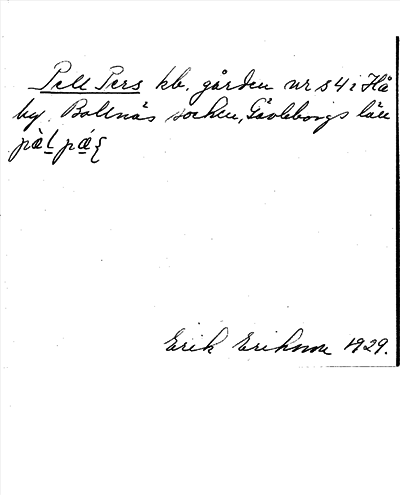 Pell Pers kb. gården nr 54 i Hå
by. Bollnäs socken, Gävleborgs län
Erik Eriksson 1929.